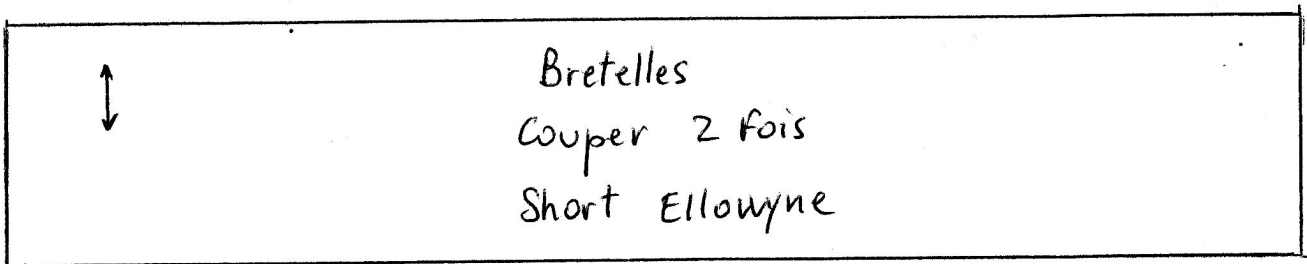 Bretelles
Couper 2 fois
Short Ellowyne